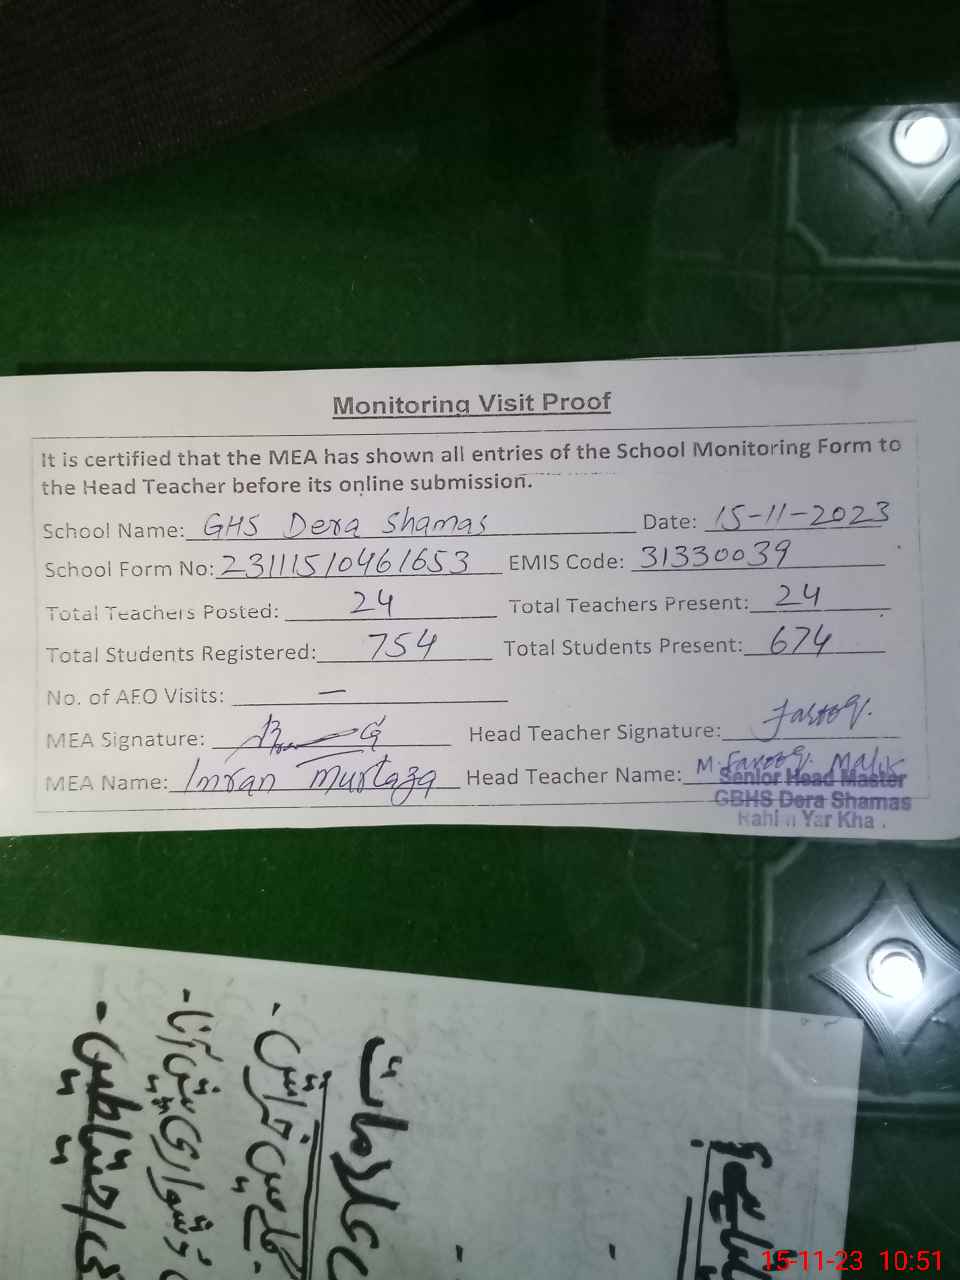 Monitoring Visit Proof
It is certified that the MEA has shown all entries of the School Monitoring Form to
the Head Teacher before its online submission.
School Name: GHS Dera Shamas Date: 15-11-2023
School Form No: 23111510461653 EMIS Code: 31330039
Total Teachers Posted: 24 Total Teachers Present: 24
Total Students Registered: 754 Total Students Present: 674
No. of AEO Visits: —
MEA Signature: Head Teacher Signature: Farooq.
MEA Name: Imran Murtaza Head Teacher Name: M. Farooq Malik
Senior Head Master
GBHS Dera Shamas
Rahim Yar Kha .
علامات
15-11-23 10:51